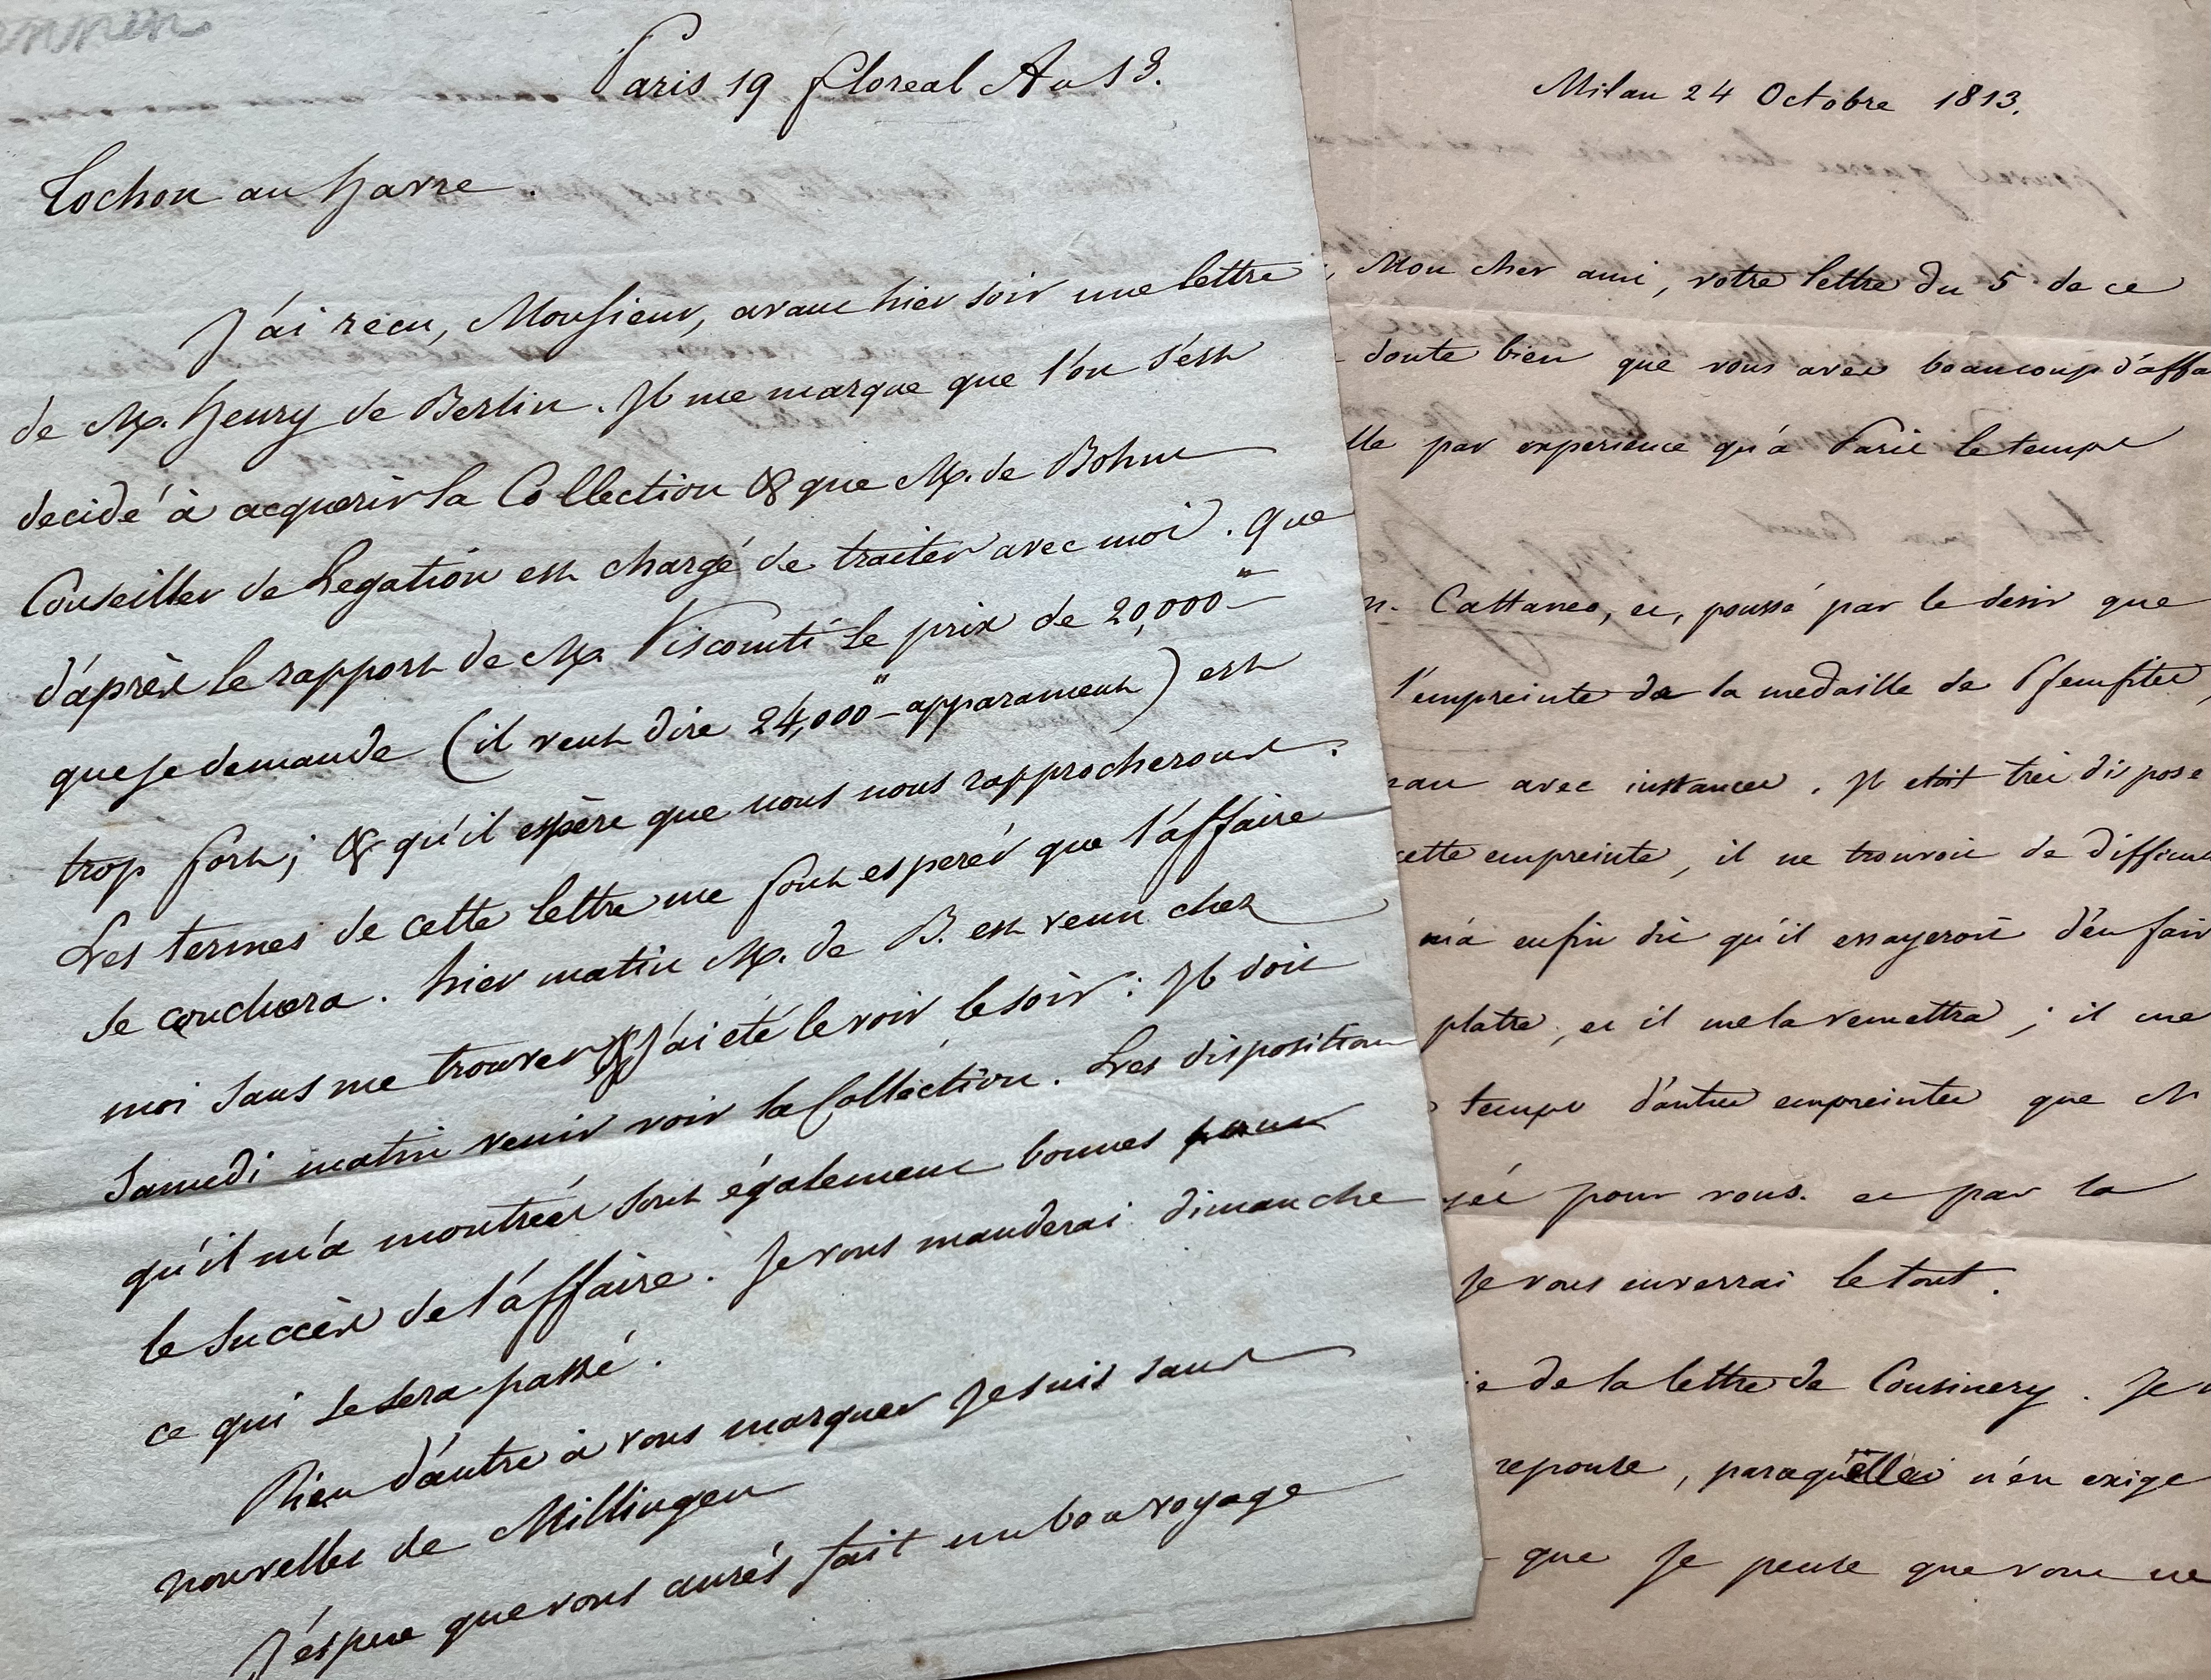 Paris 19 floreal An 13.
Tochon au havre.
J'ai recu, Monsieur, avant hier soir une lettre
de M. henry de Berlin. Il me marque que l'on s'est
decidé à acquerir la Collection & que M. de Bohm
Conseiller de Legation est chargé de traiter avec moi. que
d'après le rapport de M. Viscomti le prix de 20,000"
que je demande (il veut dire 24,000" apparament) est
trop fort; & qu'il espère que nous nous rapprocherons.
Les termes de cette lettre me font esperér que l'affaire
se concluera. hier matin M. de B. est venu chez
moi sans me trouver & J'ai été le voir le soir: Il doit
Samedi matin venir voir la Collection. Les disposition
qu'il m'a montrées sont également bonnes pour
le Succès de l'affaire. Je vous manderai dimanche
ce qui se sera passé.
Rien d'autre à vous marquer Je suis sans
nouvelles de Millingen
J'espere que vous aurés fait un bon voyage
Milan 24 Octobre 1813.
Mon cher ami, votre lettre du 5 de ce
doute bien que vous avez beaucoup d'affa
par experience qu'à Paris le temps
Cattaneo, et, poussé par le desir que
l'empreinte de la medaille de
avec instances. Il etoit très dispose
cette empreinte, il ne trouvoit de difficu
m'a enfin dit qu'il essayeroit d'en fair
platre, et il me la remettra; il me
temps d'autres empreintes que
pour vous. et par la
Je vous enverrai le tout.
de la lettre de Cousinery. Je
reponse, paraqu'elle n'en exige
que Je pense que vous ne